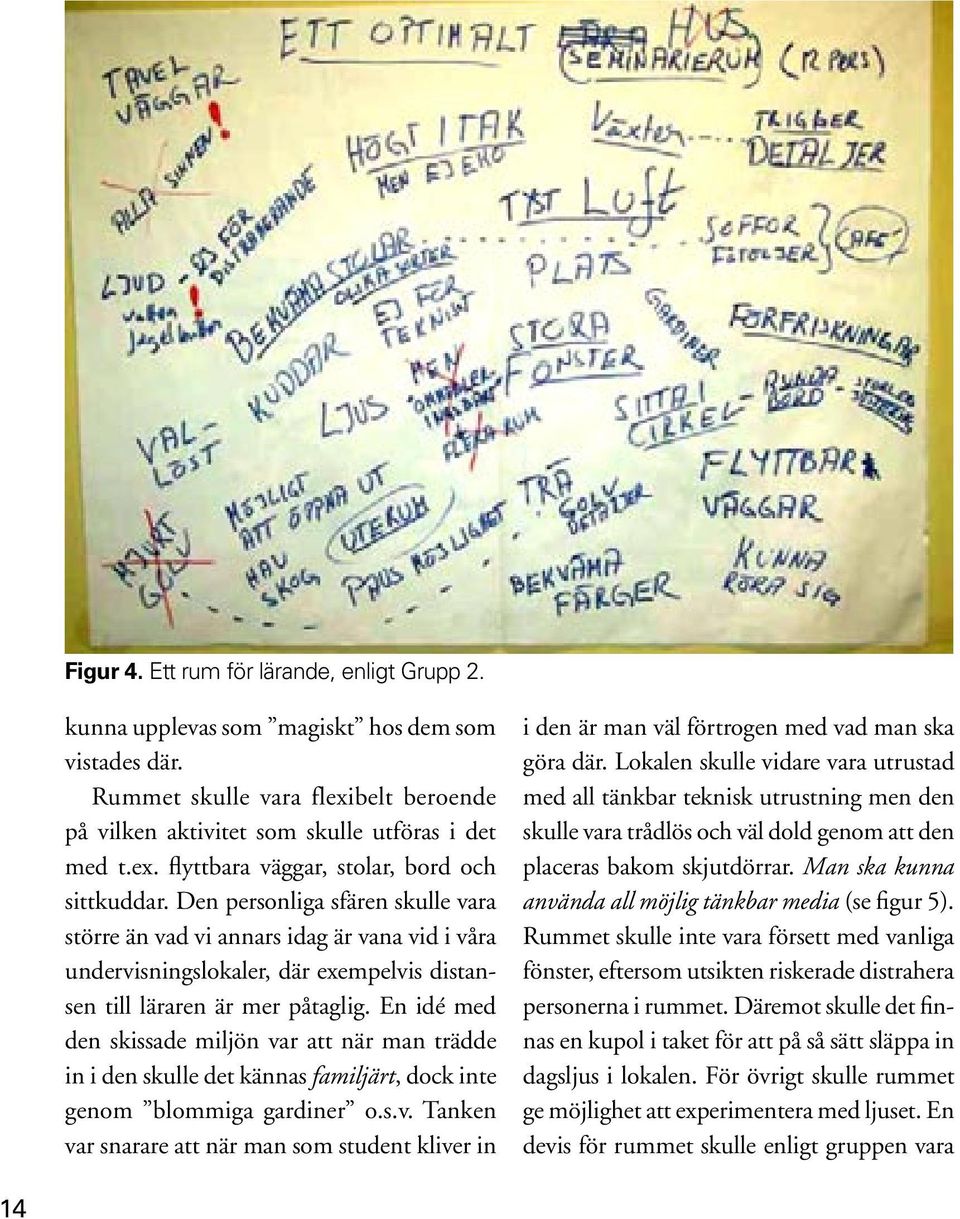 ETT OPTIMALT HUS
SEMINARIERUM (12 PERS)
TAVEL
VÄGGAR
ALLA SINNEN!
HÖGT I TAK
MEN EJ EKO
Växter....
TRIGGER
DETALJER
LJUD - EJ FÖR
DISTRAHERANDE
vatten
fågelkvitter
!
TYST LUFT
PLATS
SOFFOR
FÅTÖLJER
CAFE
BEKVÄMA STOLAR
OLIKA SORTER
EJ FÖR
TEKNISKT
GARDINER
FÖRFRISKNINGAR
KUDDAR
STORA
FÖNSTER
LJUS
MEN
FLERA RUM
SITTA I
CIRKEL -
RUNDA
BORD -
VAL-
LÖST
FLYTTBARA
VÄGGAR
MÖJLIGT
ATT ÖPPNA UT
UTERUM
HAV
SKOG
PAUS MÖJLIGHET
TRÄ
GOLV
DETALJER
MJUKT
GOLV
BEKVÄMA
FÄRGER
KUNNA
RÖRA SIG
Figur 4. Ett rum för lärande, enligt Grupp 2.
kunna upplevas som ”magiskt” hos dem som
vistades där.
Rummet skulle vara flexibelt beroende
på vilken aktivitet som skulle utföras i det
med t.ex. flyttbara väggar, stolar, bord och
sittkuddar. Den personliga sfären skulle vara
större än vad vi annars idag är vana vid i våra
undervisningslokaler, där exempelvis distan-
sen till läraren är mer påtaglig. En idé med
den skissade miljön var att när man trädde
in i den skulle det kännas familjärt, dock inte
genom ”blommiga gardiner” o.s.v. Tanken
var snarare att när man som student kliver in
i den är man väl förtrogen med vad man ska
göra där. Lokalen skulle vidare vara utrustad
med all tänkbar teknisk utrustning men den
skulle vara trådlös och väl dold genom att den
placeras bakom skjutdörrar. Man ska kunna
använda all möjlig tänkbar media (se figur 5).
Rummet skulle inte vara försett med vanliga
fönster, eftersom utsikten riskerade distrahera
personerna i rummet. Däremot skulle det fin-
nas en kupol i taket för att på så sätt släppa in
dagsljus i lokalen. För övrigt skulle rummet
ge möjlighet att experimentera med ljuset. En
devis för rummet skulle enligt gruppen vara
14